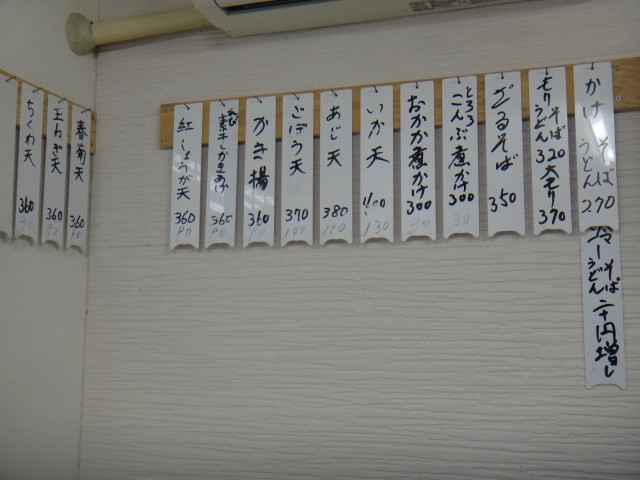 かけ そば うどん 270
冷し そば うどん 二十円増し
もり そば うどん 320 大モリ 370
ざるそば 350
とろろこんぶ煮かけ 300
30
おかか煮かけ 300
30
いか天 400
130
あじ天 380
110
ごぼう天 370
100
かき揚 360
90
素干しかきあげ 360
90
紅しょうが天 360
90
春菊天 360
90
玉ねぎ天 360
90
ちくわ天 360
90